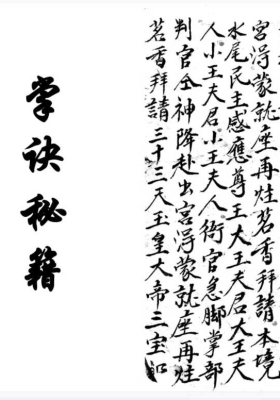 掌诀秘籍
宫淂蒙就座再炷茗香拜請本境
水尾民主感應尊王大王夫君大王夫
人小王夫君小王夫人衙官急脚掌部
判官仝神降赴出宫淂蒙就座再炷
茗香拜請三十三天玉皇大帝三宝